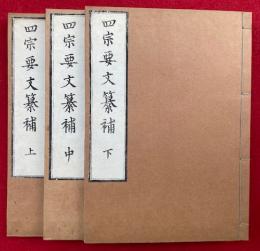 四宗要文纂補 下
四宗要文纂補 中
四宗要文纂補 上